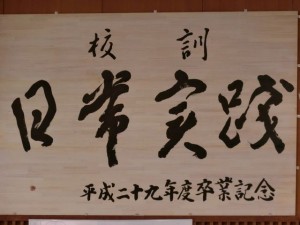 校訓
日常実践
平成二十九年度卒業記念